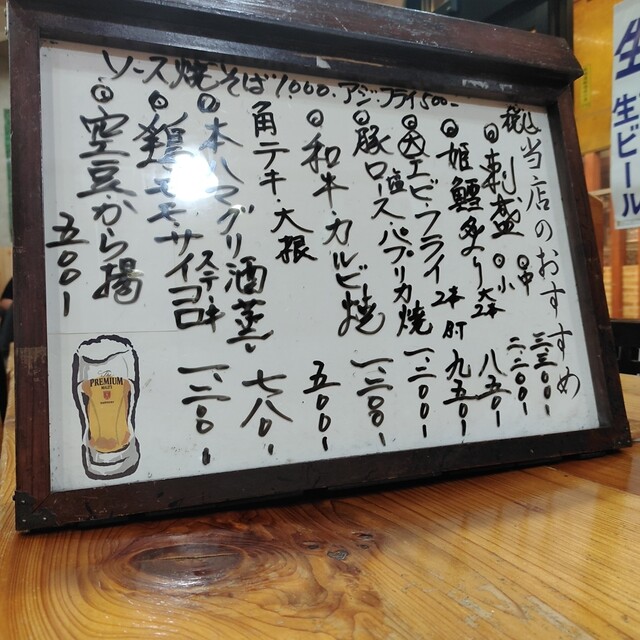 当店のおすすめ
刺盛 ㊥ 三三〇〇-
㊙小 二二〇〇-
姫鱈炙り 大2本 八五〇-
2本 肝 九五〇-
㊛エビフライ 一、二〇〇-
豚ロース塩パプリカ焼 一、二〇〇-
和牛カルビ焼
角テキ・大根 五〇〇-
本ハマグリ酒蒸し 七八〇-
鶏モモサイコロステーキ 一、二〇〇-
空豆から揚 五〇〇-
ソース焼そば1,000-
アジフライ500-
The PREMIUM MALT'S
生
生ビール